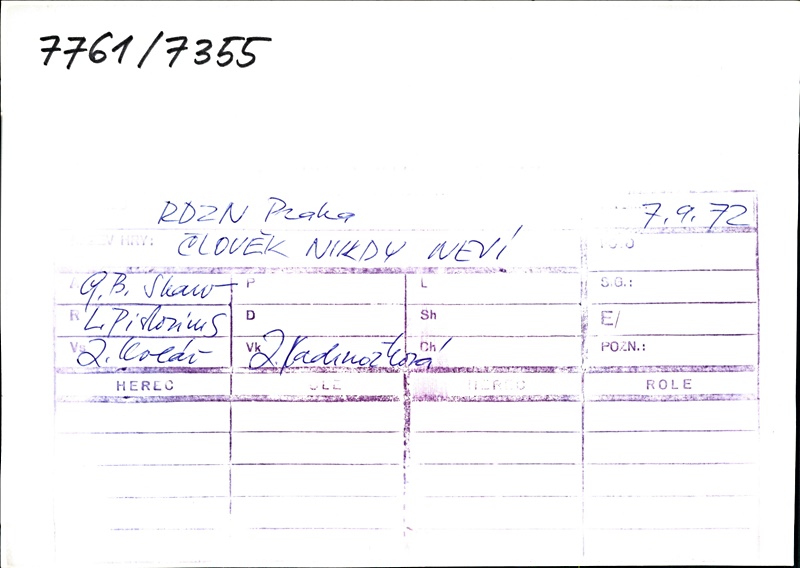 7761/7355
RDZN Praha 7.9.72
HRY: ČLOVĚK NIKDY NEVÍ
G.B. Shaw P L S.G.:
R L. Pistorius D Sh E/
Z. Kolář Vk Z. Kadnožková Ch POZN.:
HEREC ROLE HEREC ROLE